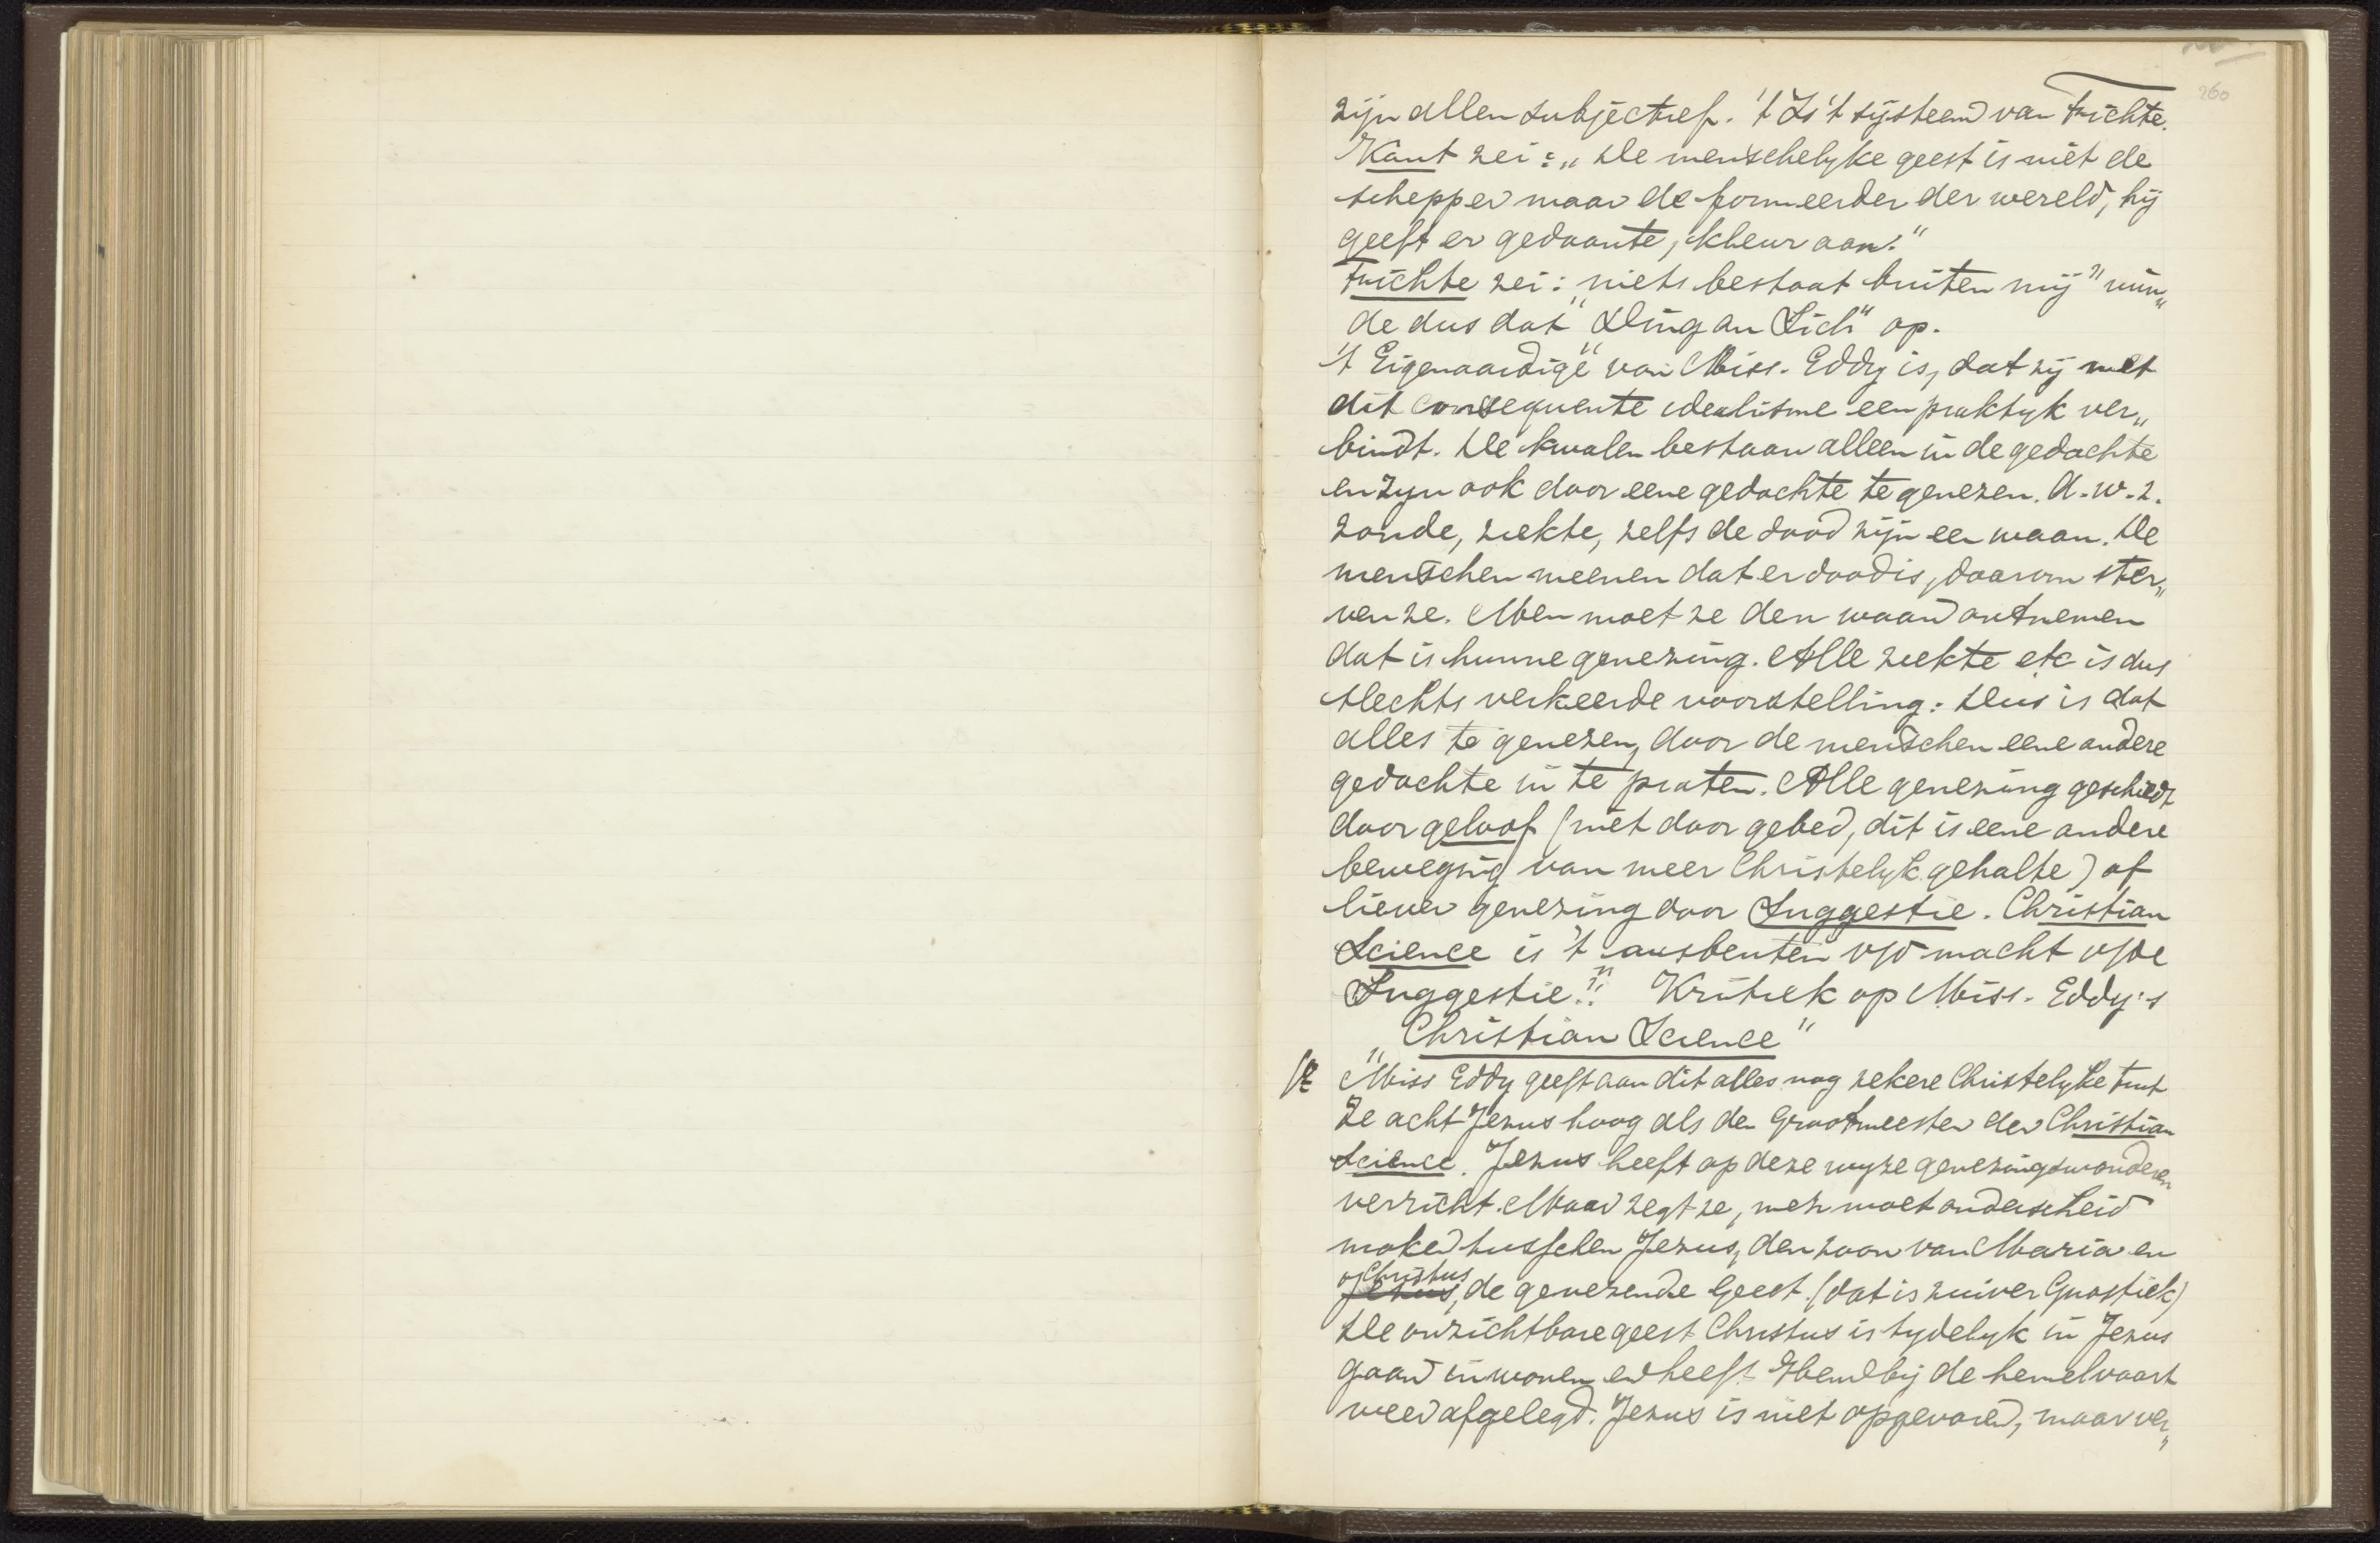 260
zijn allen subjectief. 't Is 't systeem van Fichte.
Kant zei: „De menschelyke geest is niet de
schepper maar de formeerder der wereld, hij
geeft er gedaante, kleur aan."
Fichte zei: „niets bestaat buiten mij" ruim„
de dus dat „Ding an Sich" op.
't Eigenaardige van Miss. Eddy is, dat zij met
dit consequente idealisme een praktyk ver„
bindt. De kwalen bestaan alleen in de gedachte
en zyn ook door eene gedachte te genezen. d.w.z.
zonde, ziekte, zelfs de dood zijn een waan. De
menschen meenen dat er dood is, daarom ster„
ven ze. Men moet ze den waan ontnemen
dat is hunne genezing. Alle ziekte etc is dus
slechts verkeerde voorstelling: Dus is dat
alles te genezen, door de menschen eene andere
gedachte in te praten. Alle genezing geschiedt
door geloof (niet door gebed, dit is eene andere
beweging van meer Christelyk gehalte) of
liever genezing door Suggestie. Christian
Science is 't uitbuiten v/d macht v/de
Suggestie!! Kritiek op Miss. Eddy's
„Christian Science"
Miss Eddy geeft aan dit alles nog zekere Christelyke tint
Ze acht Jezus hoog als den Grootmeester der Christian
Science. Jezus heeft op deze wyze genezingswonderen
verricht. Maar zegt ze, men moet onderscheid
maken tusschen Jezus, den zoon van Maria en
Christus
Jezus, de genezende Geest. (dat is zuiver Gnostiek)
De onzichtbare geest Christus is tydelyk in Jezus
gaan inwonen en heeft Hem bij de hemelvaart
weer afgelegd. Jezus is niet opgevaren, maar ver„